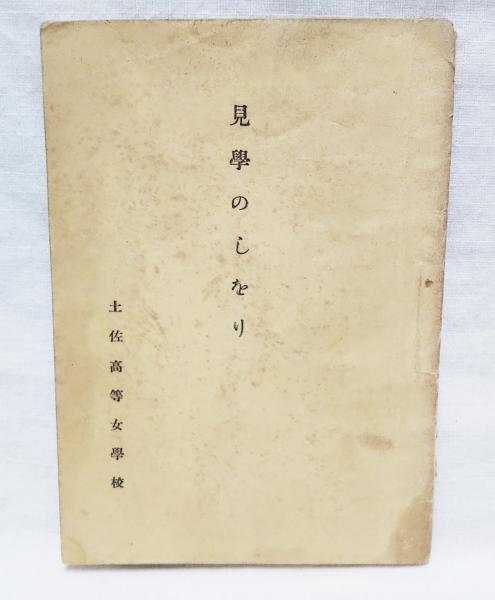 見學のしをり
土佐高等女學校